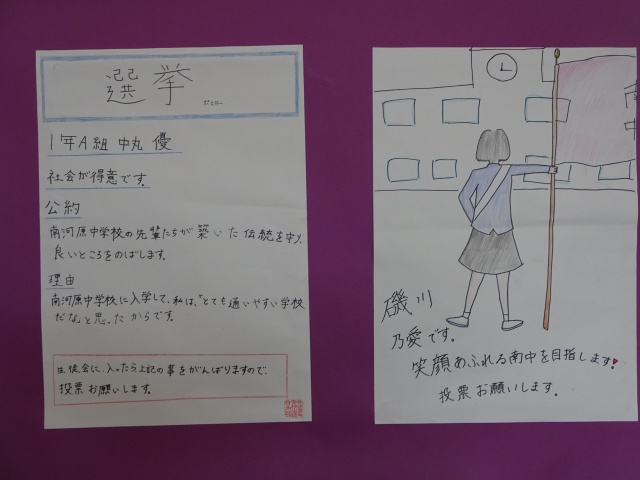 選挙
1年A組 中丸 優
社会が得意です。
公約
南河原中学校の先輩たちが築いた伝統を守り、
良いところをのばします。
理由
南河原中学校に入学して、私は、「とても通いやすい学校
だな」と思ったからです。
生徒会に、入ったら上記の事をがんばりますので、
投票お願いします。
磯川
乃愛です。
笑顔あふれる南中を目指します!
投票お願いします。